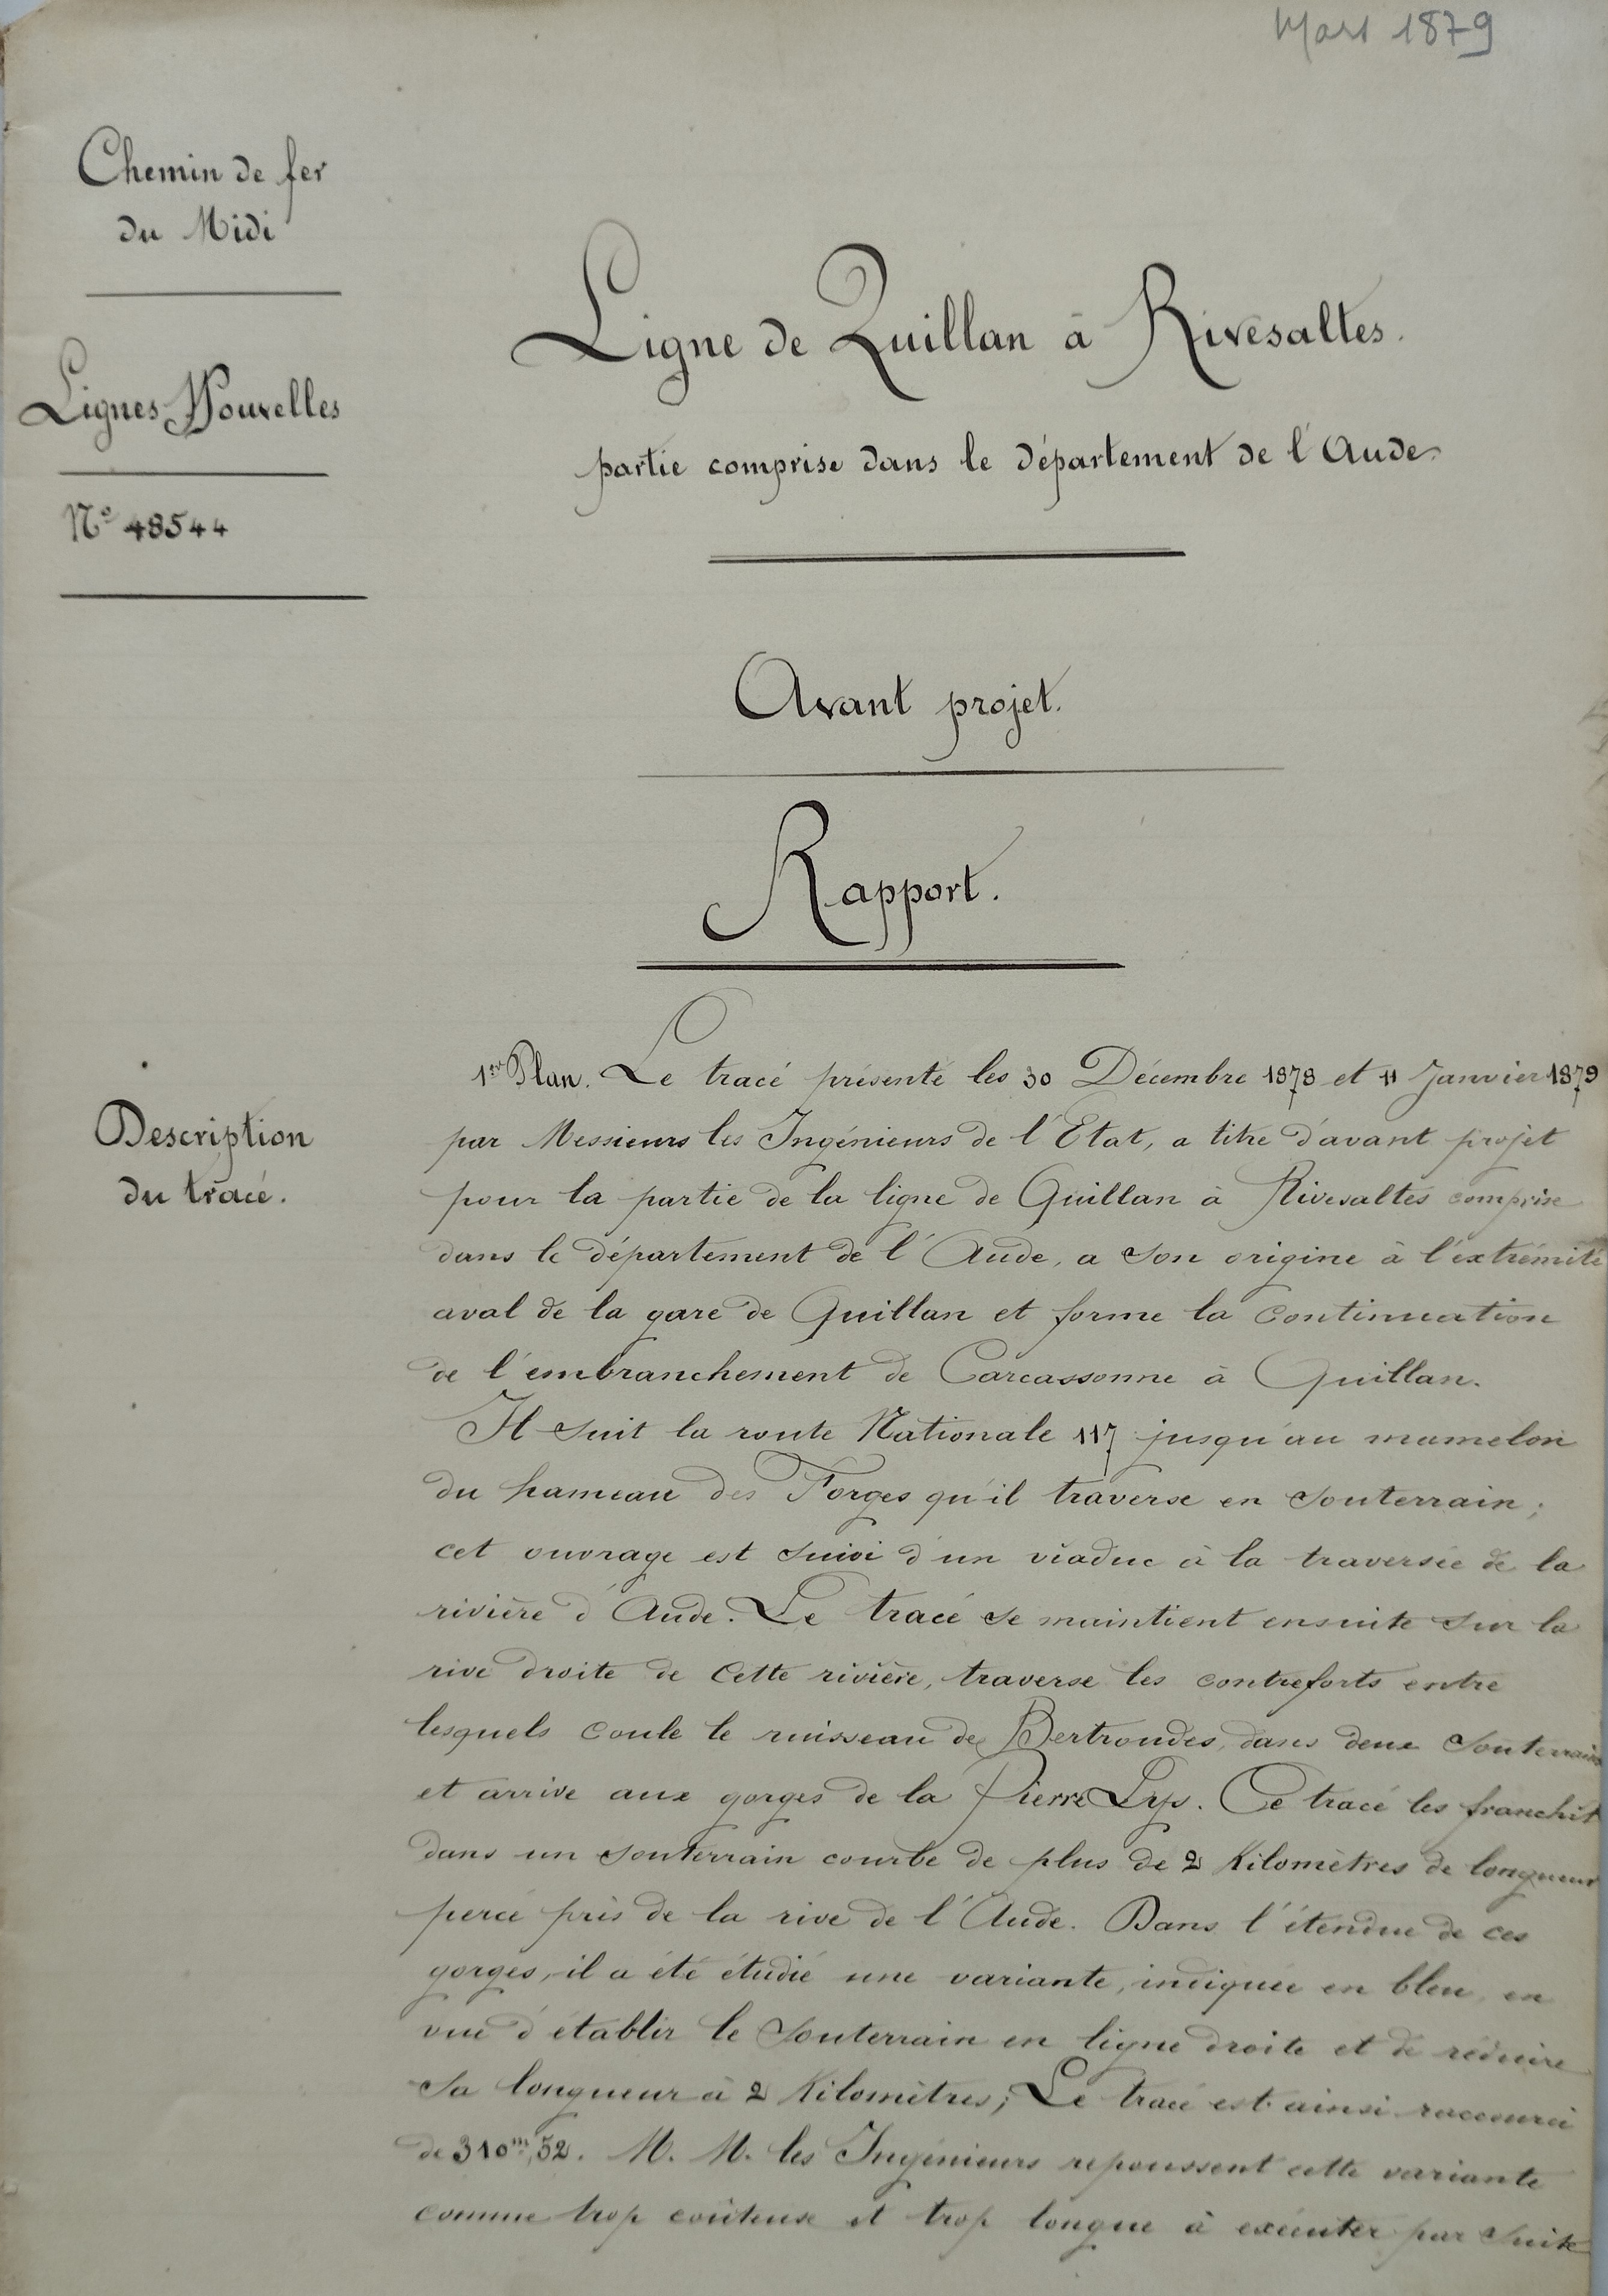 Mars 1879
Chemin de fer
du Midi
Lignes Nouvelles
N° 48544
Ligne de Quillan à Rivesaltes.
partie comprise dans le département de l'Aude
Avant projet.
Rapport.
Description
du tracé.
1er Plan. Le tracé présenté les 30 Décembre 1878 et 11 Janvier 1879
par Messieurs les Ingénieurs de l'Etat, a titre d'avant projet
pour la partie de la ligne de Quillan à Rivesaltes comprise
dans le département de l'Aude, a son origine à l'extrémité
aval de la gare de Quillan et forme la continuation
de l'embranchement de Carcassonne à Quillan.
Il suit la route Nationale 117 jusqu'au mamelon
du hameau des Forges qu'il traverse en souterrain;
cet ouvrage est suivi d'un viaduc à la traversée de la
rivière d'Aude. Le tracé se maintient ensuite sur la
rive droite de cette rivière, traverse les contreforts entre
lesquels coule le ruisseau de Bertrondes, dans deux souterrains
et arrive aux gorges de la Pierre Lys. Ce tracé les franchit
dans un souterrain courbe de plus de 2 Kilomètres de longueur
percé près de la rive de l'Aude. Dans l'étendue de ces
gorges, il a été étudié une variante, indiquée en bleu, en
vue d'établir le souterrain en ligne droite et de réduire
sa longueur à 2 Kilomètres; Le tracé est ainsi raccourci
de 310m,52. M. M. les Ingénieurs repoussent cette variante
comme trop coûteuse et trop longue à exécuter par suite